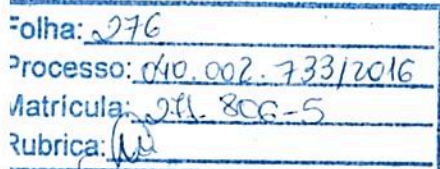 Folha: 276
Processo: 040.002.733/2016
Matrícula: 271.806-5
Rubrica: